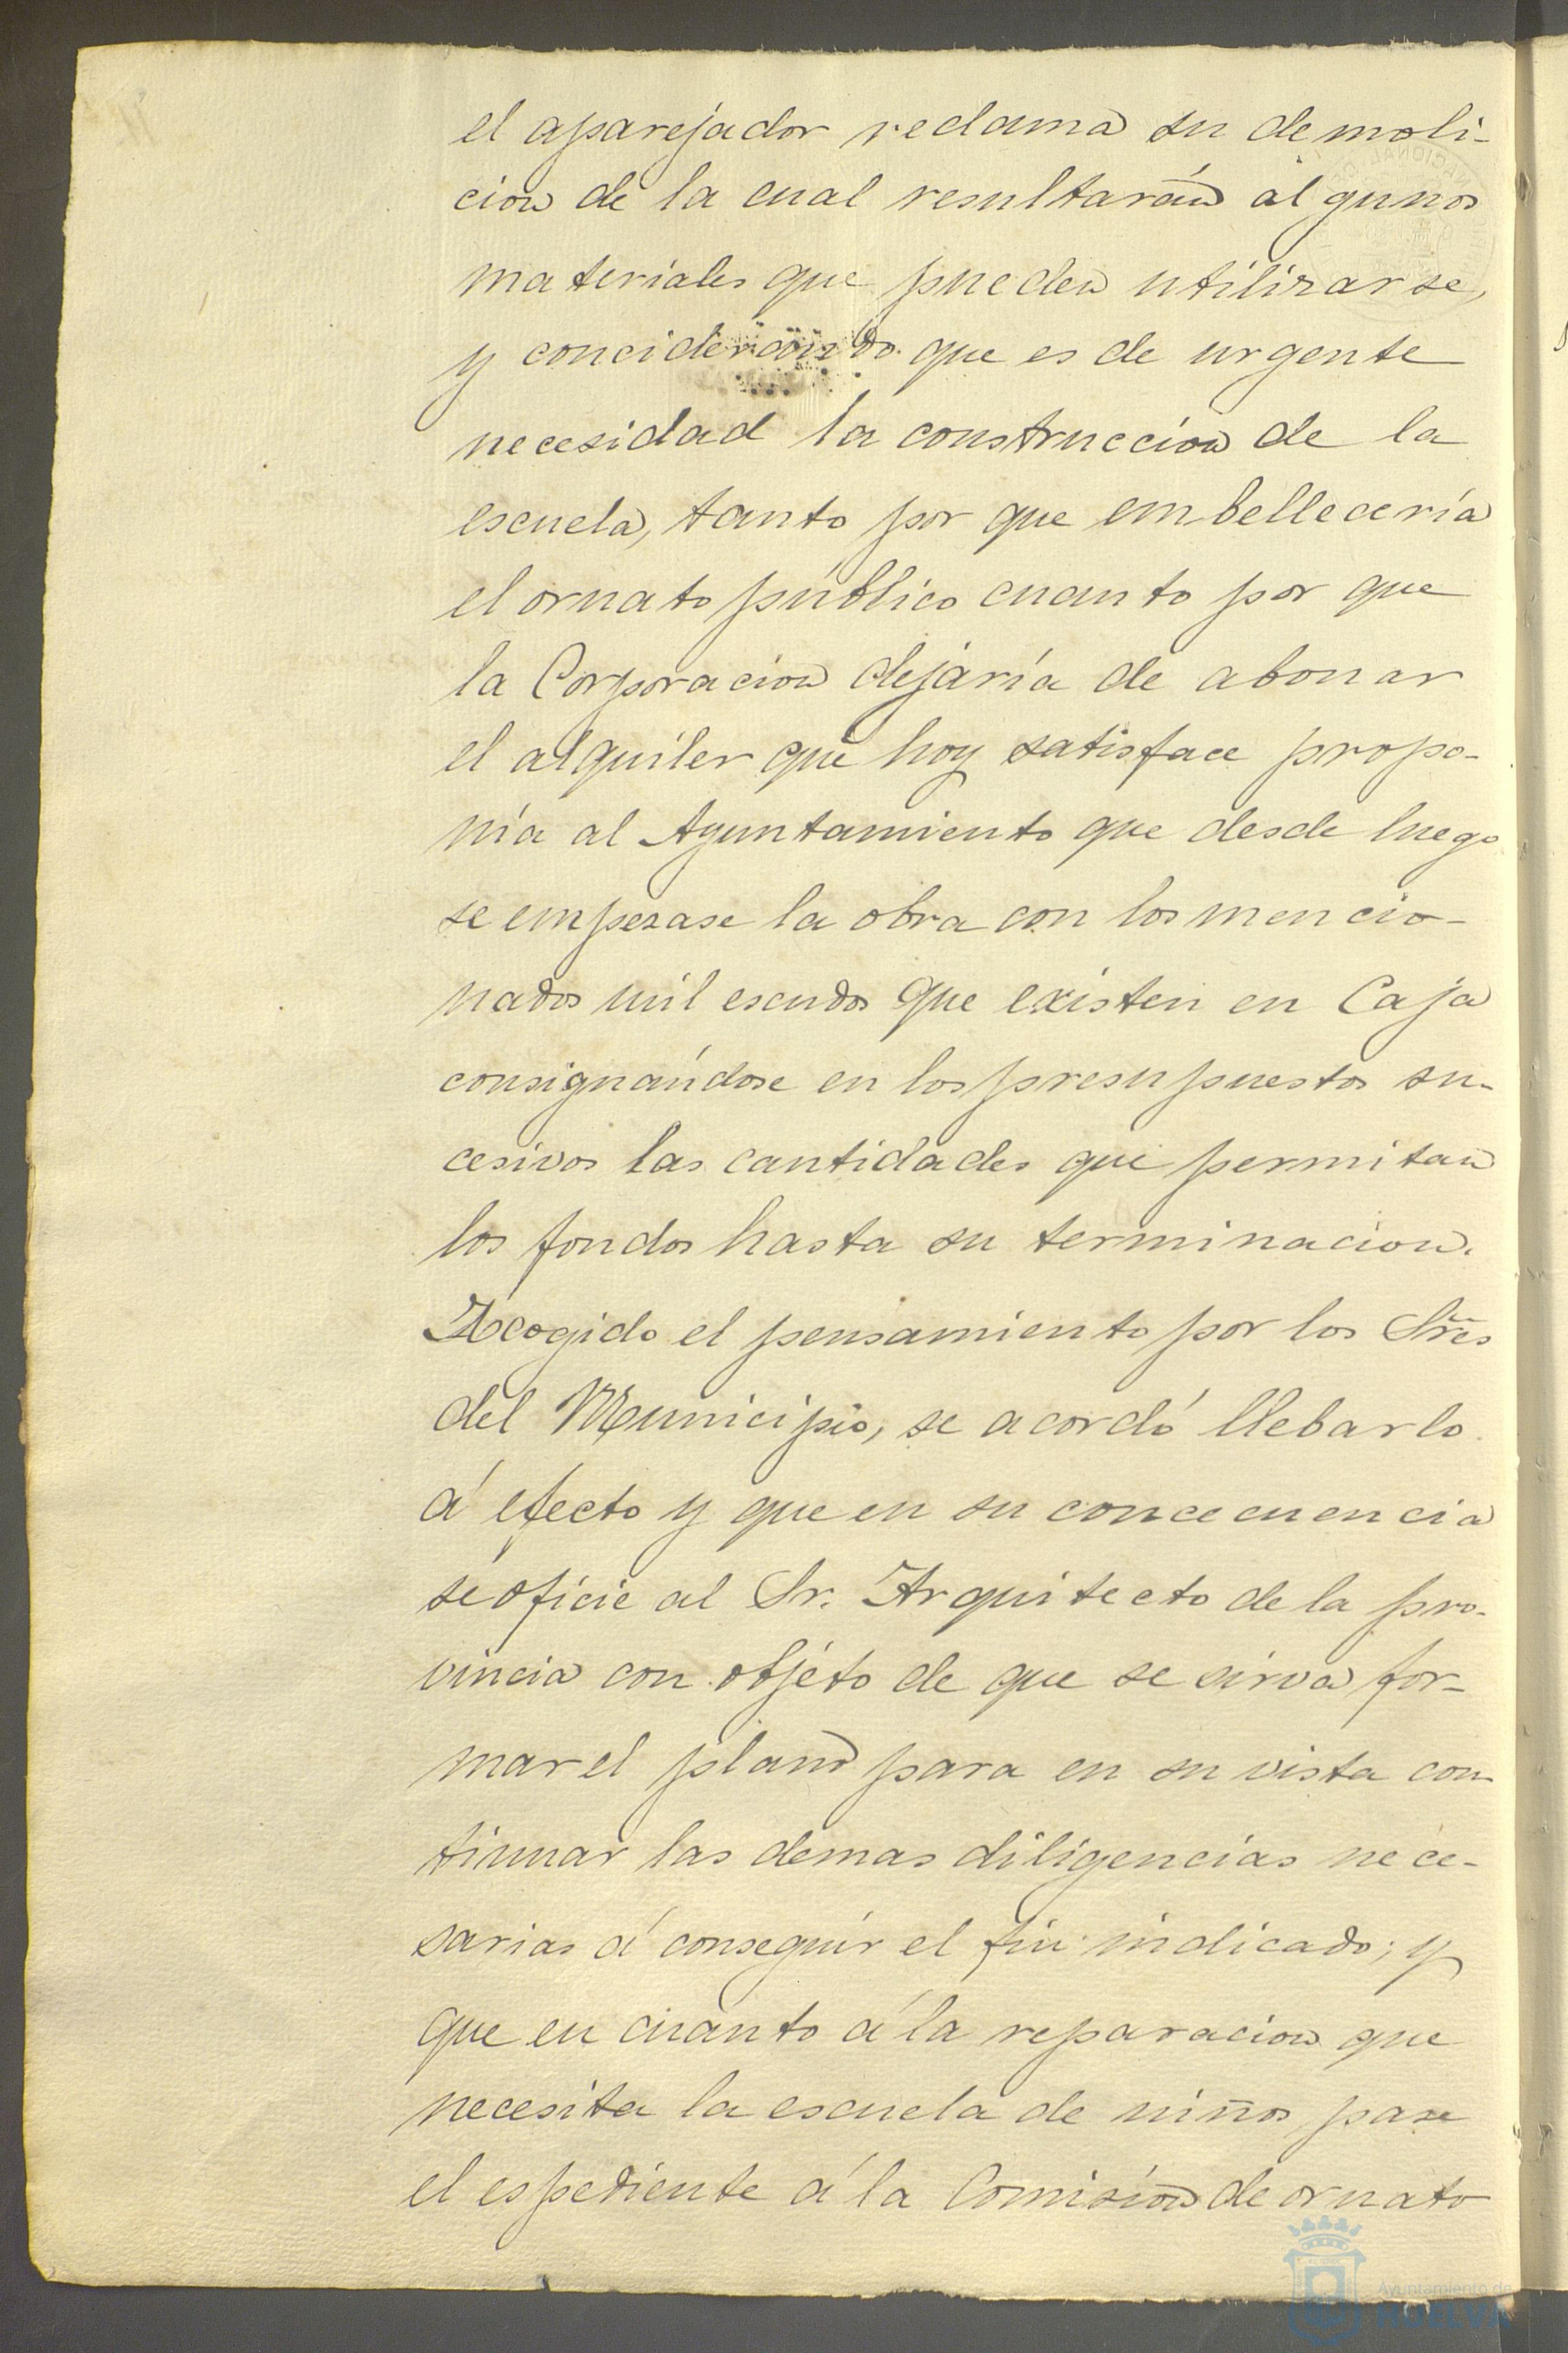 el aparejador reclama su demoli-
cion de la cual resultarán algunos
materiales que pueden utilizarse,
y conciderando que es de urgente
necesidad la construccion de la
escuela, tanto por que embellecería
el ornato público cuanto por que
la Corporacion dejaría de abonar
el alquiler que hoy satisface propo-
nía al Ayuntamiento que desde luego
se empezase la obra con los mencio-
nados mil escudos que existen en Caja
consignándose en los presupuestos su-
cesivos las cantidades que permitan
los fondos hasta su terminacion.
Acogido el pensamiento por los Sres
del Municipio, se acordó llebarlo
á efecto y que en su concecuencia
se oficie al Sr. Arquitecto de la pro-
vincia con objeto de que se sirva for-
mar el plano para en su vista con-
tinuar las demas diligencias nece-
sarias á conseguir el fin indicado; y
que en cuanto á la reparacion que
necesita la escuela de niños pase
el espediente á la Comisión de ornato
Ayuntamiento de
HUELVA